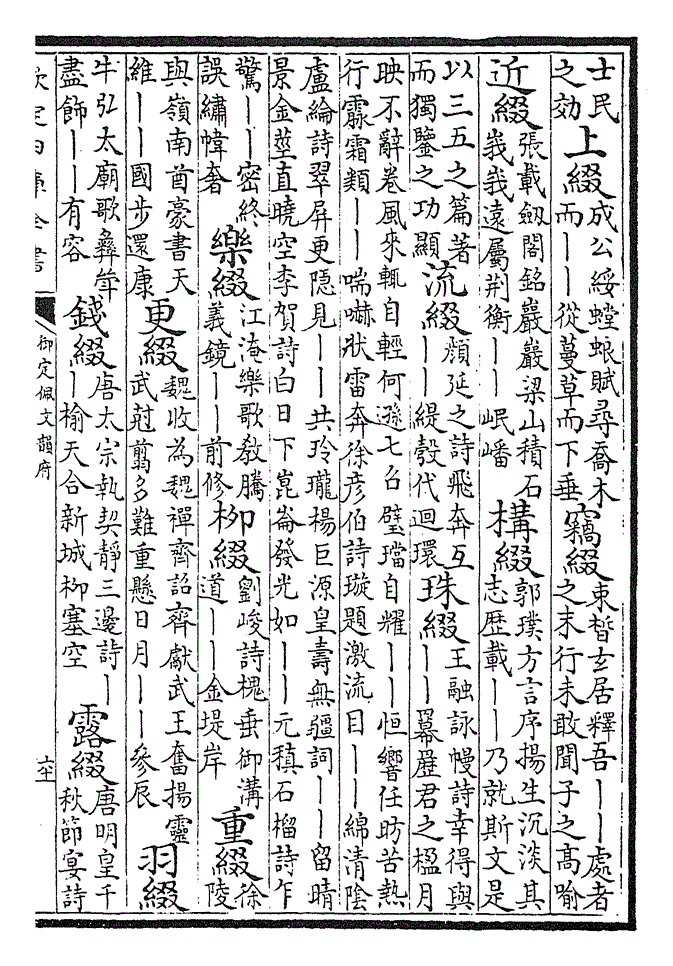 士民之効上綴成公綏螳蜋賦尋喬木而——從蔓草而下垂竊綴束晳玄居釋吾——處者之末行未敢聞子之高喻
近綴張載劔閣銘巖巖梁山積石峩峩遠屬荆衡——岷嶓構綴郭璞方言序揚生沉淡其志歴載——乃就斯文是
以三五之篇著而獨鑒之功顯流綴顔延之詩飛奔互——緹彀代迴環珠綴王融詠幔詩幸得與——羃䍥君之楹月
映不辭卷風來輒自輕何遜七召璧璫自耀——恒響任昉苦熱
行霢霜類——喘嚇狀雷奔徐彦伯詩璇題激流日——綿清陰
盧綸詩翠屏更隱見——共玲瓏楊巨源皇壽無疆詞——留晴
景金莖直曉空李賀詩白日下崑崙發光如——元稹石榴詩乍
驚——密終誤繡幃奢樂綴江淹樂歌敎騰義鏡——前修柳綴劉峻詩槐垂御溝道——金堤岸重綴徐陵
與嶺南酋豪書天維——國步還康更綴魏收為魏禪齊詔齊獻武王奮揚靈武尅翦多難重懸日月——參辰羽綴
牛弘太廟歌彛斝盡飾——有容錢綴唐太宗執契靜三邊詩——榆天合新城柳塞空露綴唐明皇千秋節宴詩
欽定四庫全書
御定佩文韻府
六十